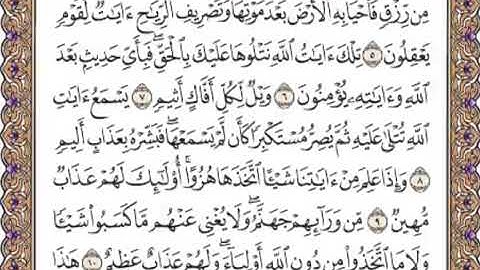 مِن رِّزْقٍ فَأَحْيَا بِهِ ٱلْأَرْضَ بَعْدَ مَوْتِهَا وَتَصْرِيفِ ٱلرِّيَٰحِ ءَايَٰتٌ لِّقَوْمٍ
يَعْقِلُونَ ٥ تِلْكَ ءَايَٰتُ ٱللَّهِ نَتْلُوهَا عَلَيْكَ بِٱلْحَقِّ ۖ فَبِأَيِّ حَدِيثٍۭ بَعْدَ
ٱللَّهِ وَءَايَٰتِهِۦ يُؤْمِنُونَ ٦ وَيْلٌ لِّكُلِّ أَفَّاكٍ أَثِيمٍ ٧ يَسْمَعُ ءَايَٰتِ
ٱللَّهِ تُتْلَىٰ عَلَيْهِ ثُمَّ يُصِرُّ مُسْتَكْبِرًا كَأَن لَّمْ يَسْمَعْهَا ۖ فَبَشِّرْهُ بِعَذَابٍ أَلِيمٍ
٨ وَإِذَا عَلِمَ مِنْ ءَايَٰتِنَا شَيْـًٔا ٱتَّخَذَهَا هُزُوًا ۚ أُو۟لَٰٓئِكَ لَهُمْ عَذَابٌ
مُّهِينٌ ٩ مِّن وَرَآئِهِمْ جَهَنَّمُ ۖ وَلَا يُغْنِى عَنْهُم مَّا كَسَبُوا۟ شَيْـًٔا
وَلَا مَا ٱتَّخَذُوا۟ مِن دُونِ ٱللَّهِ أَوْلِيَآءَ ۖ وَلَهُمْ عَذَابٌ عَظِيمٌ ١٠ هَٰذَا